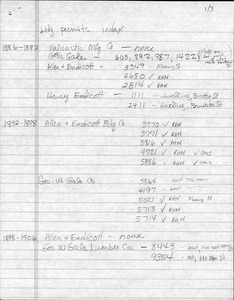 1/3
bldg permits index
1886-1892 Valvosta Mfg Co — none
Geo W. Gale — 603, 892, 987, 1422
Allen & Endicott — 3549 - Massy St
2680 ✓ RAN
2814 ✓ RAN
Henry Endicott — 1111 - dwelling,
2411 - dwelling, Brewster St
1892-1898 Allen & Endicott Bldg Co 3770 ✓ RAN
3771 ✓ RAN
3816 ✓ RAN
4721 ✓ RAN ✓
5886 ✓ RAN ✓
Geo. W. Gale Co 3864
4197 - RAN
5021 ✓ RAN
5713 ✓ RAN
5714 ✓ RAN
1898-1906 Allen & Endicott — none
Geo W Gale Lumber Co — 8443 -
9354 -